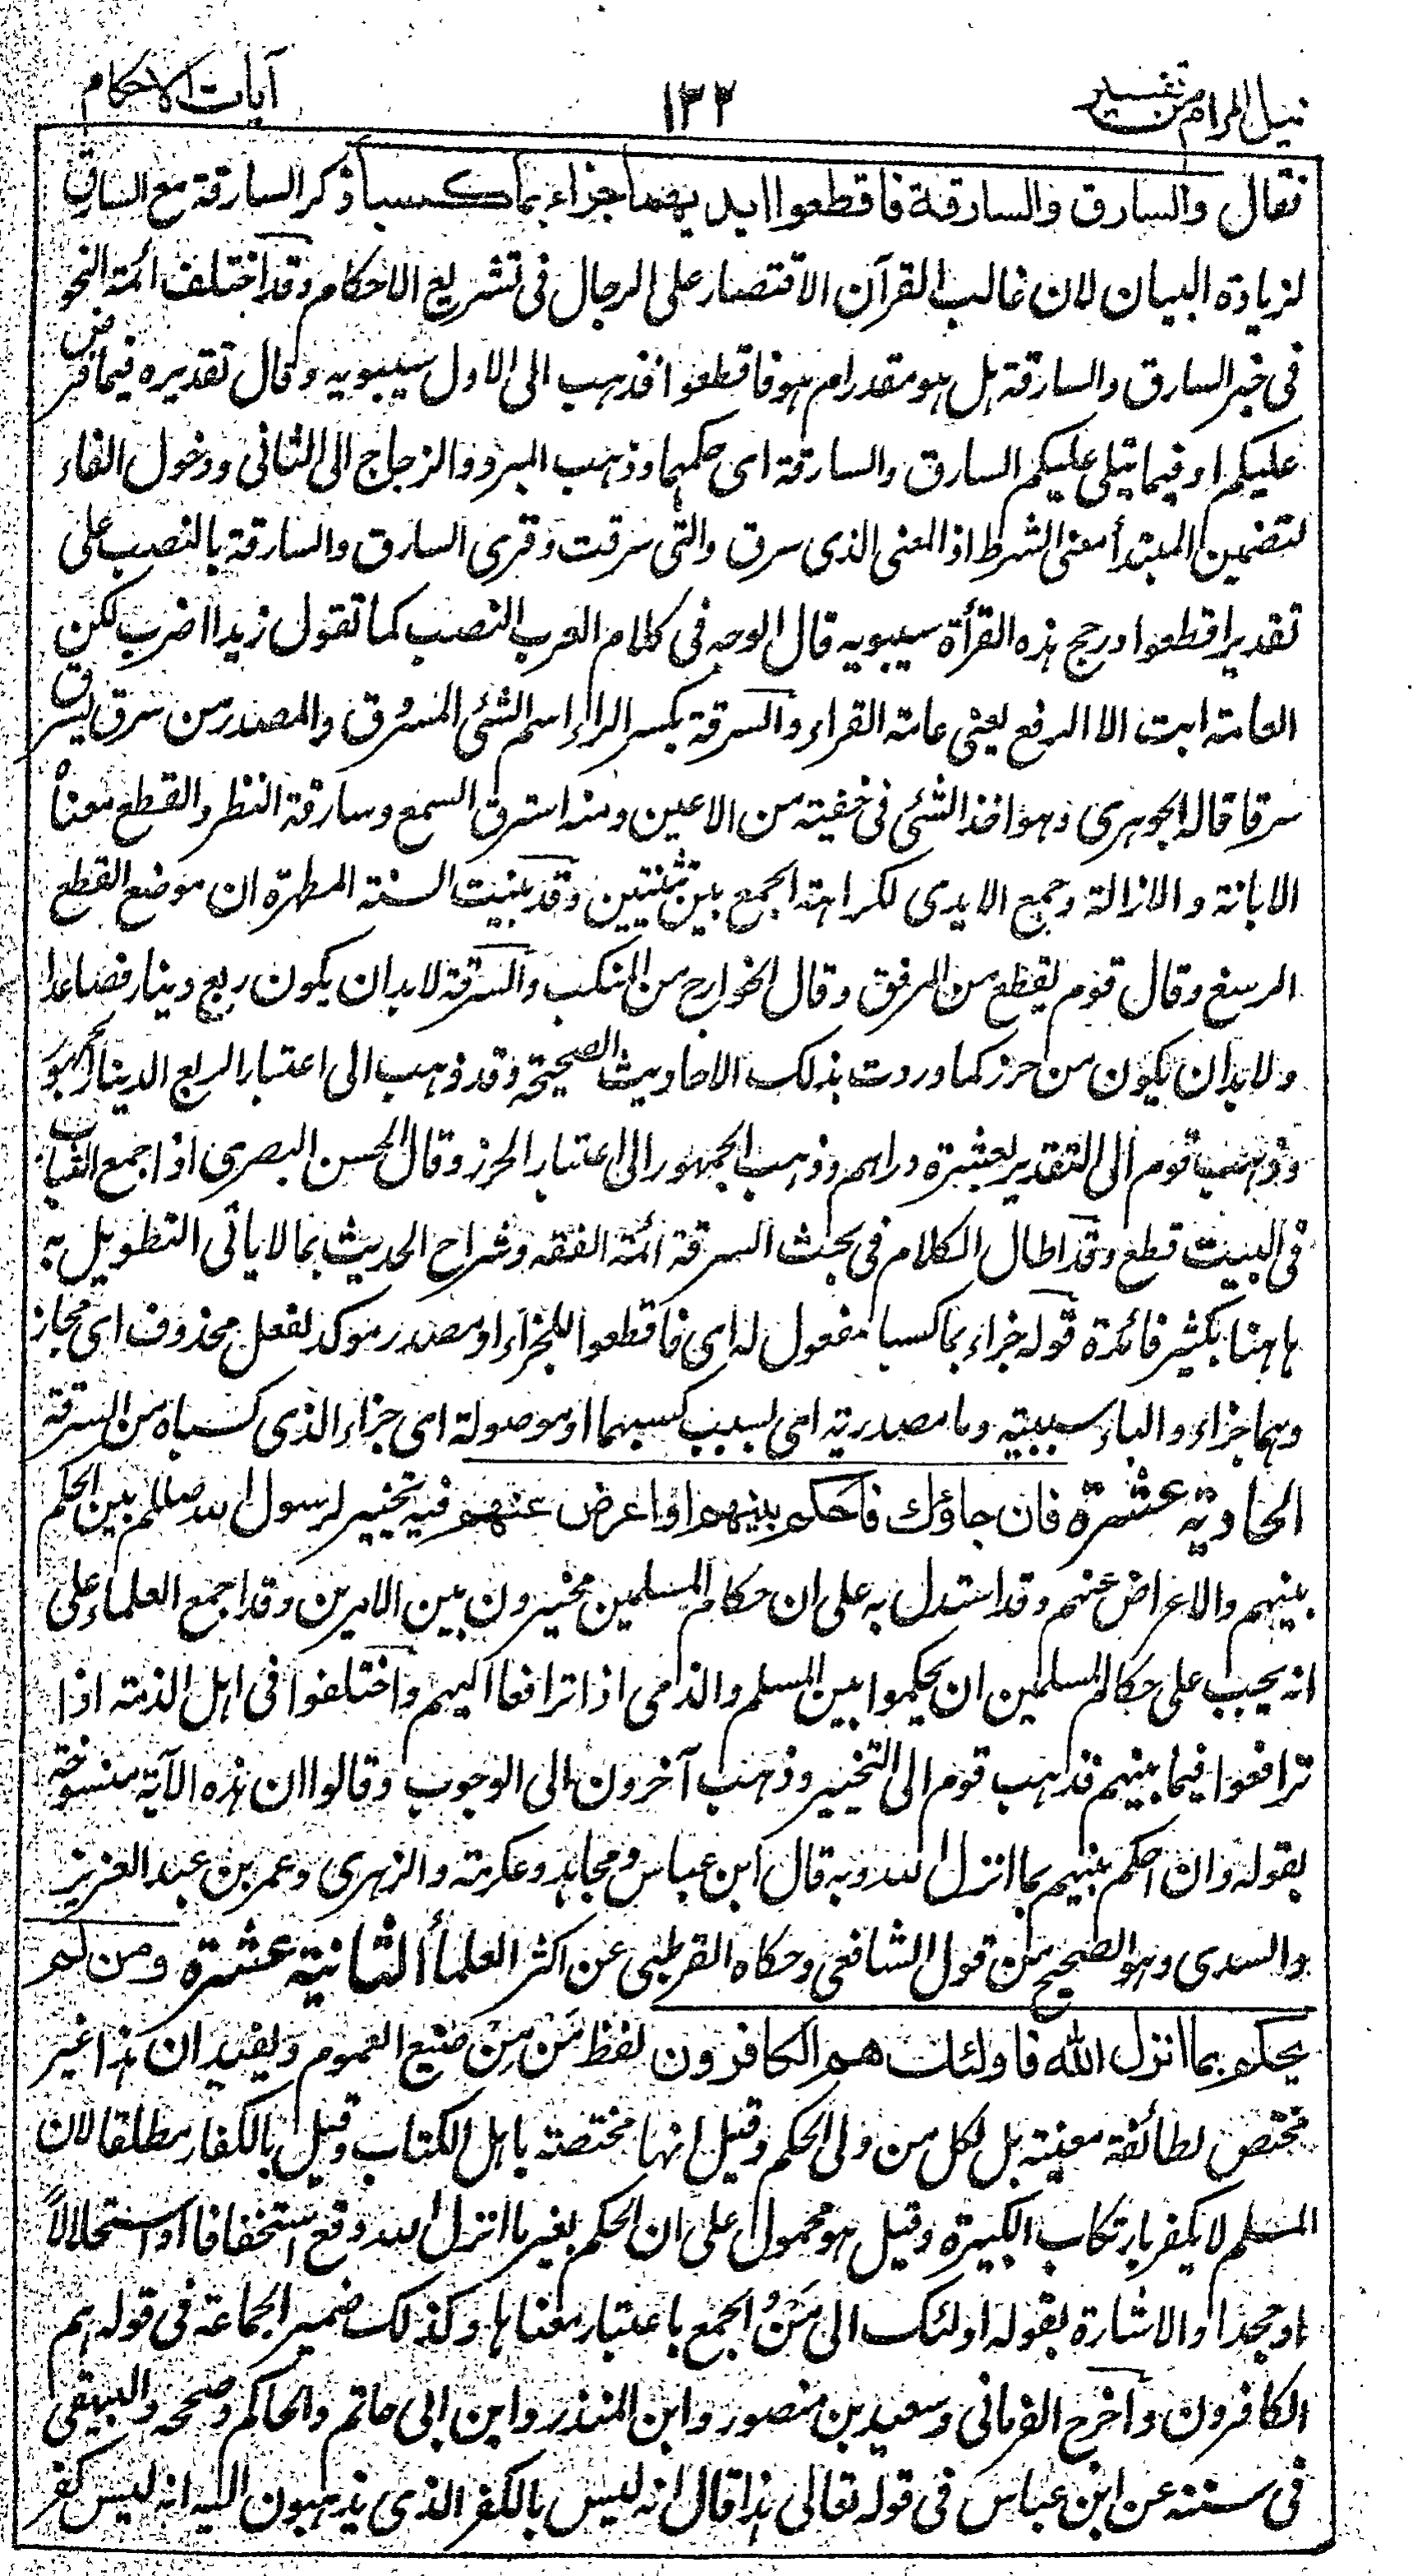 نيل المرام من تفسير ١٣٢ آيات الاحكام
فقال والسارق والسارقة فاقطعوا ايديهما جزاء بما كسبا ذكر السارقة مع السارق
لزيادة البيان لان غالب القرآن الاقتصار على الرجال فى تشريع الاحكام وقد اختلف ائمة النحو
فى خبر السارق والسارقة هل هو مقدر ام هو فاقطعوا فذهب الى الاول سيبويه وقال تقديره فيما فرض
عليكم او فيما يتلى عليكم السارق والسارقة اى حكمهما وذهب المبرد والزجاج الى الثانى ودخول الفاء
لتضمين المبتدأ معنى الشرط اذ المعنى الذى سرق والتى سرقت وقرى السارق والسارقة بالنصب على
تقدير اقطعوا ورجح هذه القرأة سيبويه قال الوجه فى كلام العرب النصب كما تقول زيدا اضرب لكن
العامة ابت الا الرفع يعنى عامة القراء والسرقة بكسر الراء اسم الشئ المسرق والمصدر من سرق يسرق
سرقا قاله الجوهرى وهو اخذ الشئ فى خفية من الاعين ومنه استرق السمع وسارقة النظر والقطع معناه
الابانة والازالة وجمع الايدى لكراهة الجمع بين تثنيتين وقد بينت السنة المطهرة ان موضع القطع
الرسغ وقال قوم يقطع من المرفق وقال الخوارج من المنكب والسرقة لابد ان يكون ربع دينار فصاعدا
ولابد ان يكون من حرز كما وردت بذلك الاحاديث الصحيحة وقد ذهب الى اعتبار الربع الدينار الجمهور
وذهب قوم الى التقدير بعشرة دراهم وذهب الجمهور الى اعتبار الحرز وقال الحسن البصرى اذا جمع الثياب
فى البيت قطع وقد اطال الكلام فى بحث السرقة ائمة الفقه وشراح الحديث بما لا ياتى التطويل به
هاهنا بكثير فائدة قوله جزاء بما كسبا مفعول له اى فاقطعوا للجزاء او مصدر موكد لفعل محذوف اى فجاز
وهما جزاء والباء سببية وما مصدرية اى بسبب كسبهما او موصولة اى جزاء الذى كسباه من السرقة
الحادية عشرة فان جاؤك فاحكم بينهم او اعرض عنهم فيه تخيير لرسول الله صللم بين الحكم
بينهم والاعراض عنهم وقد استدل به على ان حكام المسلمين مخيرون بين الامرين وقد اجمع العلماء على
انه يجب على حكام المسلمين ان يحكموا بين المسلم والذمى اذا ترافعا اليهم واختلفوا فى اهل الذمة اذا
ترافعوا فيما بينهم فذهب قوم الى التخيير وذهب آخرون الى الوجوب وقالوا ان هذه الآية منسوخة
بقوله وان احكم بينهم بما انزل الله وبه قال ابن عباس ومجاهد وعكرمة والزهرى وعمر بن عبد العزيز
والسدى وهو الصحيح من قول الشافعى وحكاه القرطبى عن اكثر العلمأ الثانية عشرة ومن لم
يحكم بما انزل الله فاولئك هم الكافرون لفظ مَن مِن صيغ العموم ويفيد ان هذا غير
مختص بطائفة معينة بل لكل من ولى الحكم وقيل انها مختصة باهل الكتاب وقيل بالكفار مطلقا لان
المسلم لا يكفر بارتكاب الكبيرة وقيل هو محمول على ان الحكم بغير ما انزل الله وقع استخفافا او استحلالاً
او جحدا والاشارة بقوله اولئك الى مَن والجمع باعتبار معناها وكذلك ضمير الجماعة فى قوله هم
الكافرون واخرج الفريابى وسعيد بن منصور وابن المنذر وابن ابى حاتم والحاكم وصححه والبيهقى
فى سننه عن ابن عباس فى قوله تعالى هذا قال انه ليس بالكفر الذى يذهبون اليه انه ليس كفر